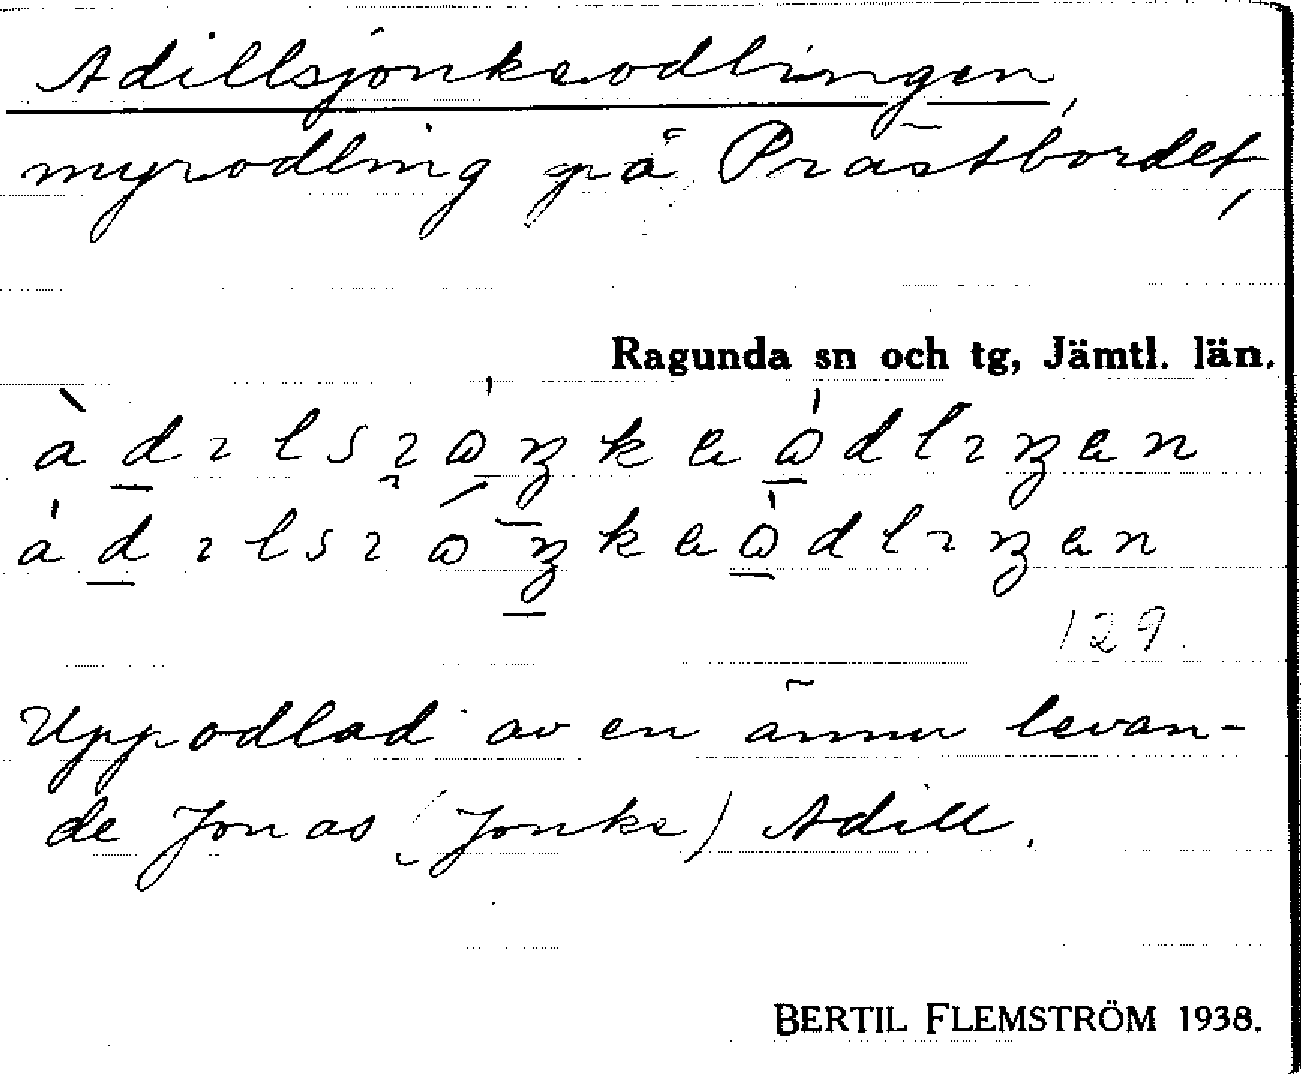 Adillsjonkeodlingen,
myrodling på Prästbordet,
Ragunda sn och tg, Jämtl. län.
129.
Uppodlad av en ännu levan-
de Jonas (Jonke) Adill.
BERTIL FLEMSTRÖM 1938.